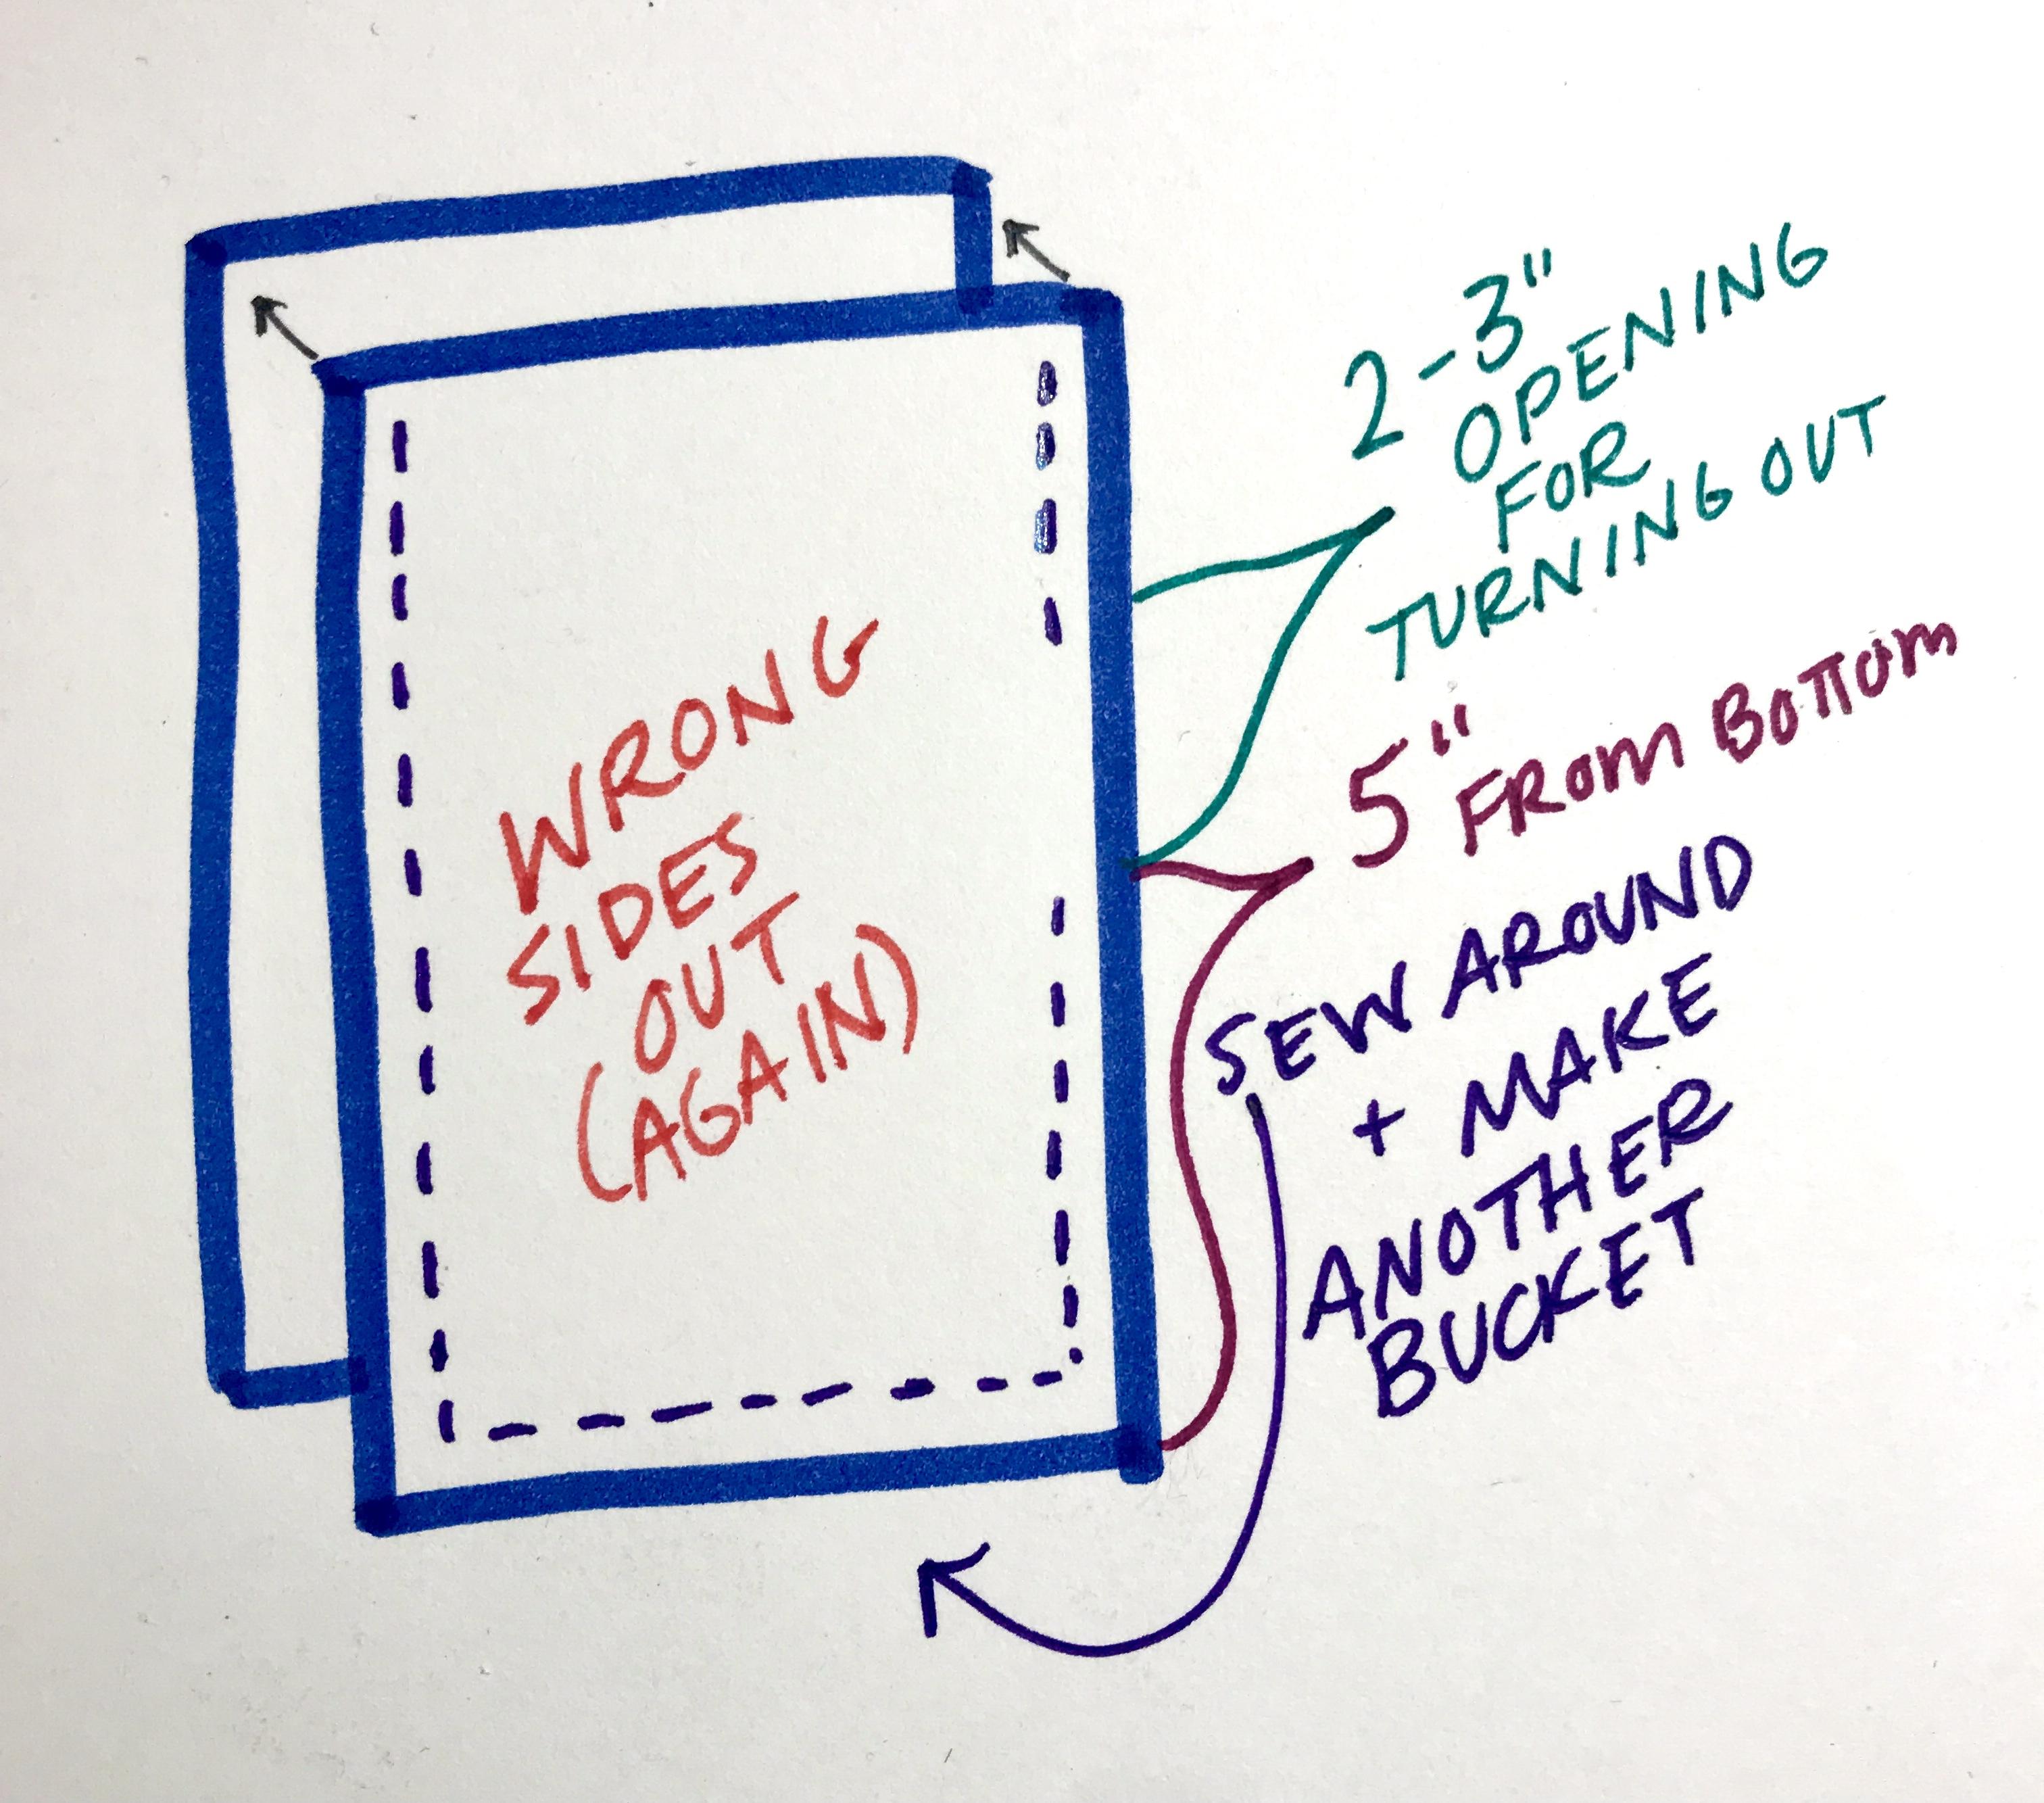 2-3"
OPENING
FOR
TURNING OUT
5" FROM BOTTOM
WRONG
SIDES
OUT
(AGAIN)
SEW AROUND
+ MAKE
ANOTHER
BUCKET